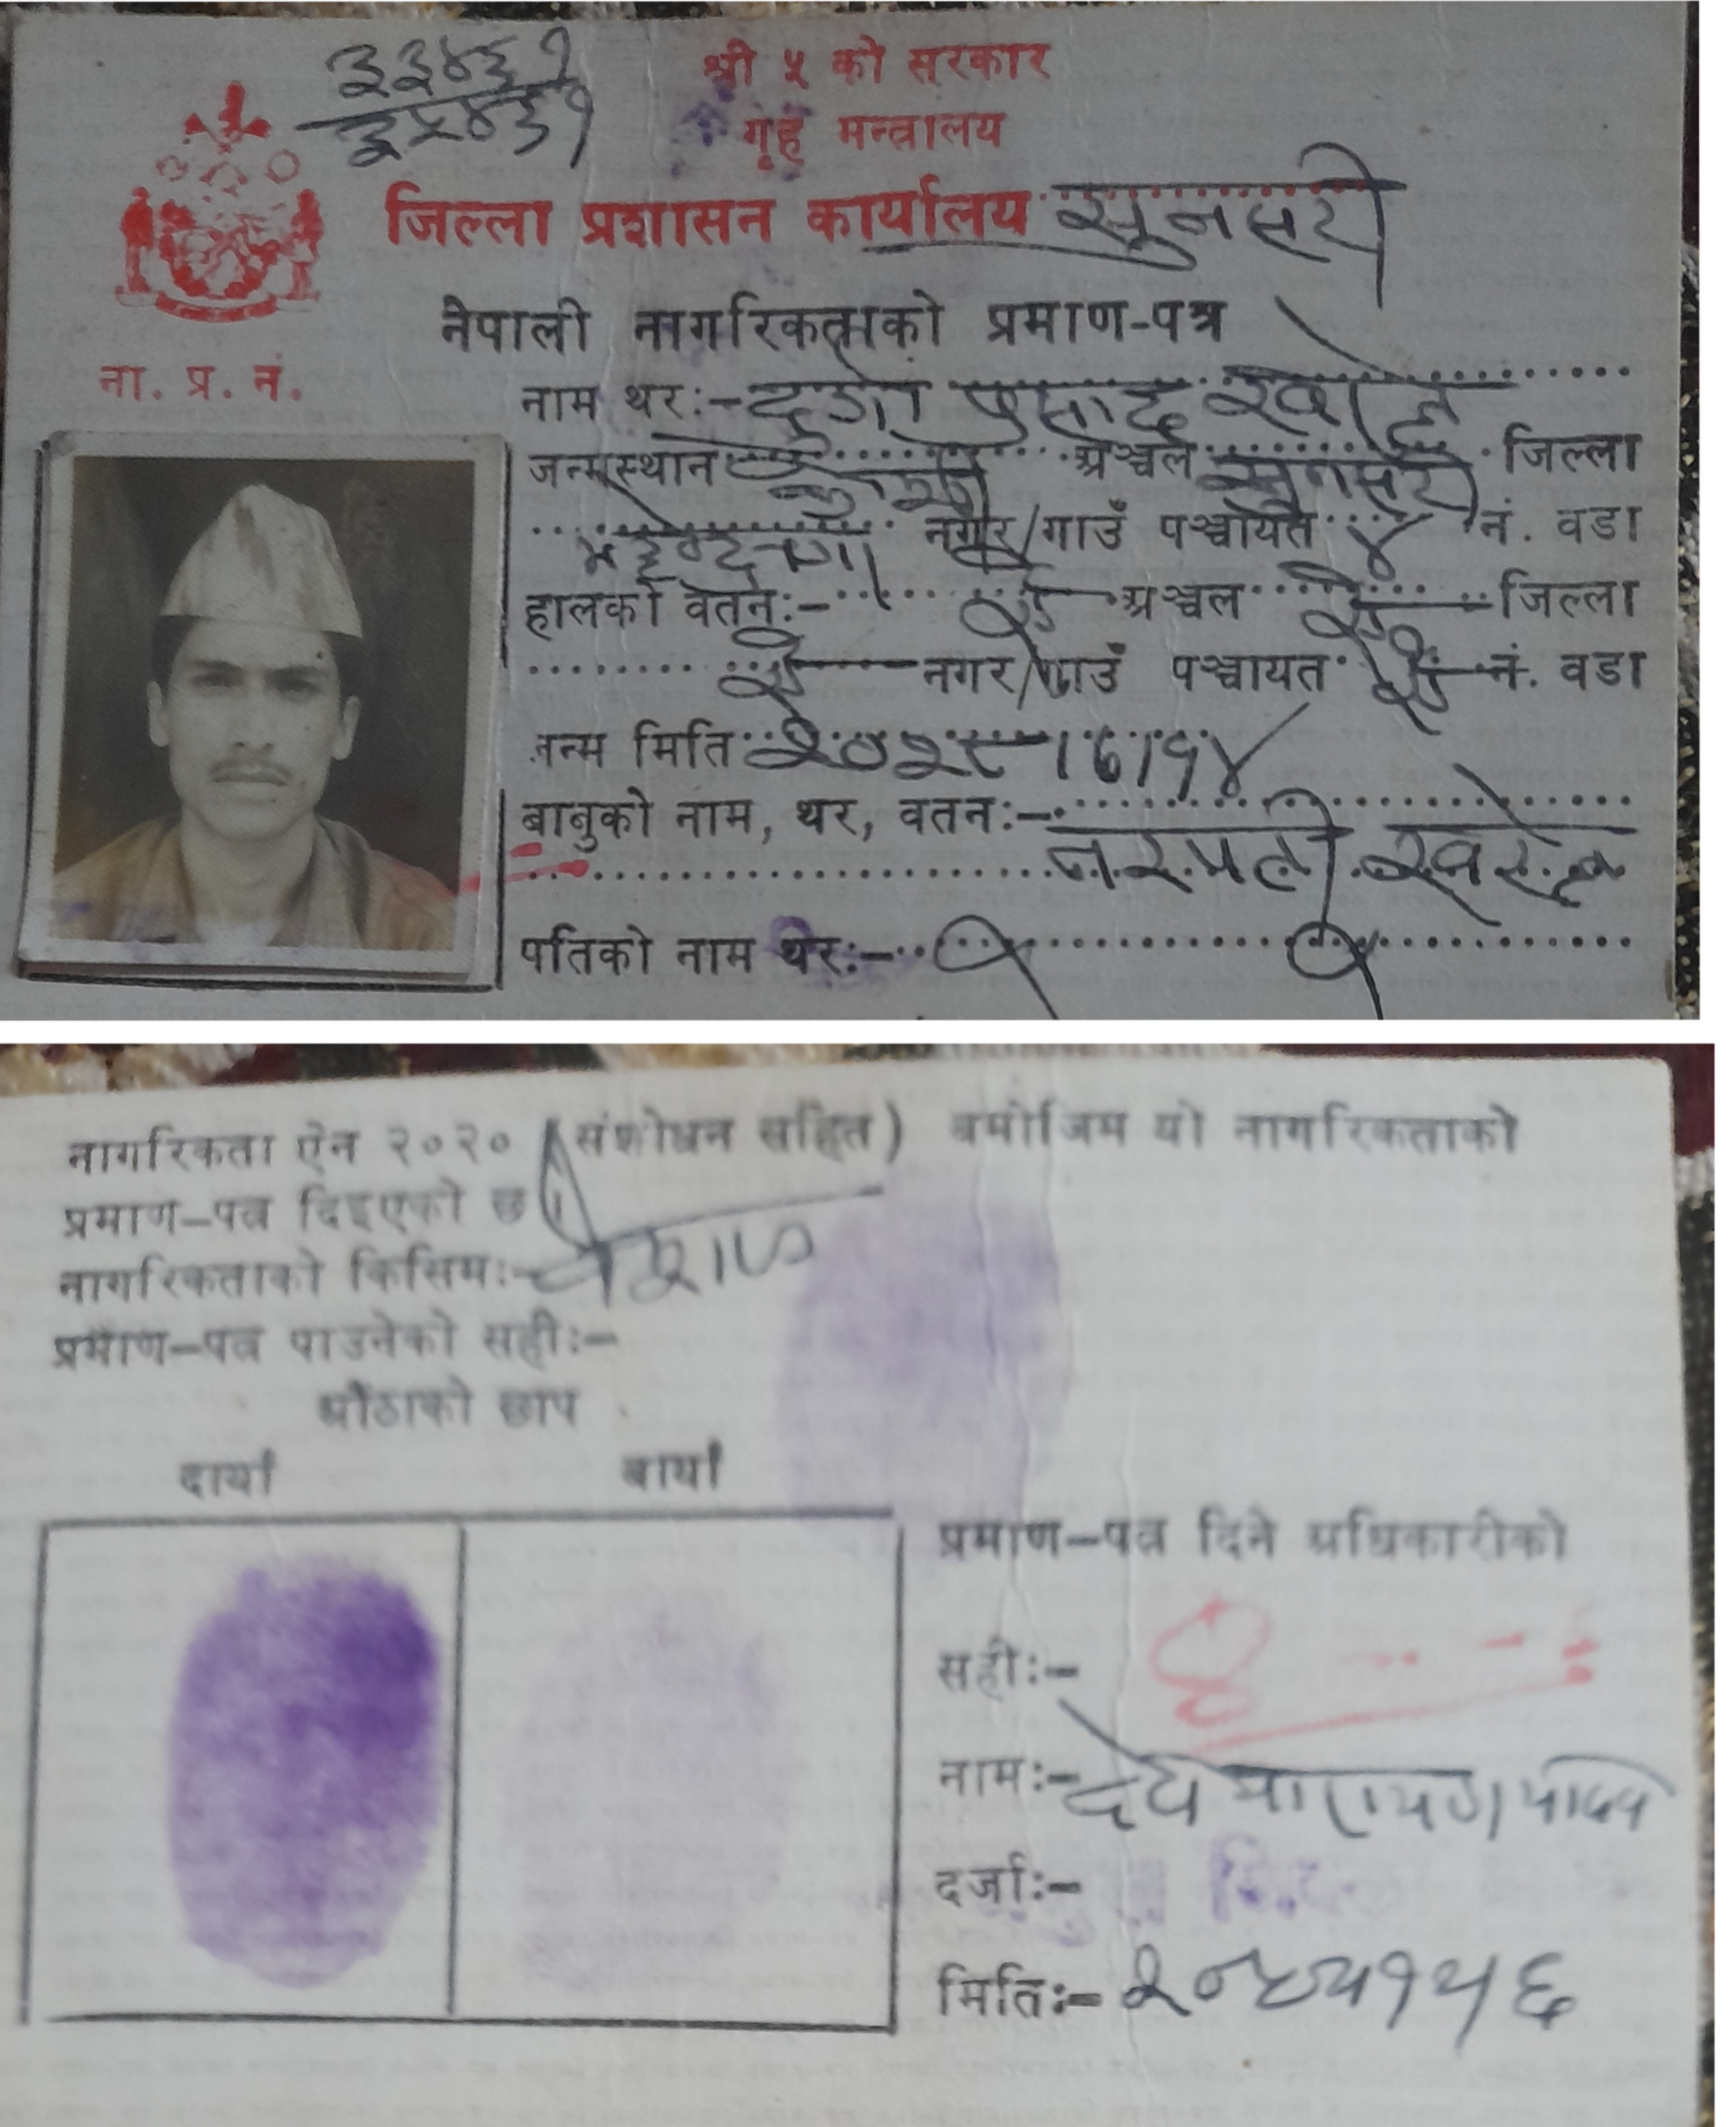 ३३४६१
३५४६१
श्री ५ को सरकार
गृह मन्त्रालय
जिल्ला प्रशासन कार्यालय सुनसरी
नेपाली नागरिकताको प्रमाण-पत्र
ना. प्र. नं.
नाम थर:- दुर्गा प्रसाद
जन्मस्थान कोशी अञ्चल सुनसरी जिल्ला
नगर/गाउँ पञ्चायत ४ नं. वडा
हालको वतन:- ऐ अञ्चल ऐ जिल्ला
ऐ नगर/गाउँ पञ्चायत ऐ नं. वडा
जन्म मिति २०२८।७।१४
बाबुको नाम, थर, वतन:-
नरपती
पतिको नाम थर:-
नागरिकता ऐन २०२० (संशोधन सहित) बमोजिम यो नागरिकताको
प्रमाण-पत्र दिइएको छ।
नागरिकताको किसिम:- वंशज
प्रमाण-पत्र पाउनेको सही:-
औंठाको छाप
दायाँ बायाँ
प्रमाण-पत्र दिने अधिकारीको
सही:-
नाम:- देव नारायण यादव
दर्जा:-
मिति:-